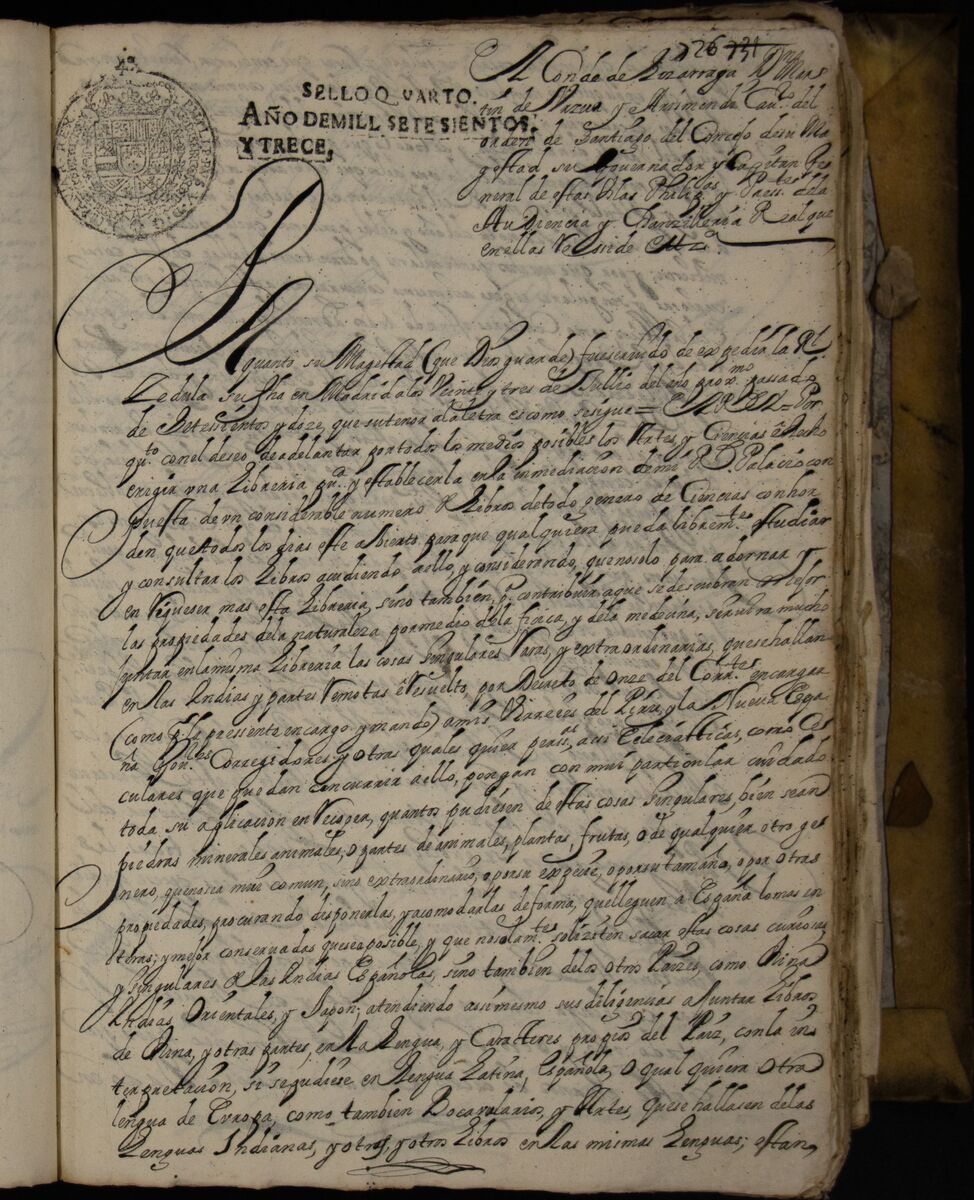 226 731
SELLO QVARTO.
AÑO DEMILL SETESIENTOS,
YTRECE,
PHILIPPVS
El Conde de Lizarraga Dn. Mar
tin de Vrzua y Arismendi Cau.o del
orden de Santiago del Consejo de su Ma
gestad su Gouernador y Capitan Ge
neral de estas Yslas Philipinas y Press.te dela
Audiencia y Chanzilleria Real que
en ellas Reside
quanto su Magestad (que Dios guarde) fue seruido de expedir la Rl
Zedula su fha en Madrid alos Veinte y tres de Jullio del año prox.mo passado
de Setesientos y doze, que su tenor ala letra es como se sigue = EL REY = Por
qu.to con el deseo de adelantar por todos los medios posibles los Artes, y Ciencias è hecho
erigir vna Libreria pu.ca y establecerla en la inmediacion de mi Rl Palacio con
puesta de vn considerable numero de Libros de todo genero de Ciencias con hor
den que todos los dias este abierto para que qualquiera pueda librem.te estudiar
y consultar los Libros acudiendo aello, y considerando, que no solo para adornar y
enriqueser mas esta Libreria, sino tambien, p.a contribuir aque se descubran mejor
las propiedades dela naturaleza por medio dela fisica, y dela medecina, seruira mucho
juntar en la misma Libreria las cosas singulares raras, y extraordinarias, que se hallan
en las Yndias y partes remotas è resuelto, por Decreto de onze del Corr.te encargar
(como por la presente encargo y mando) amis Virreyes del Piru, y la Nueua Espa
ña Gou.res Corregidores y otras quales quiera perss.as asi Eclesiasticas, como Se
culares que puedan concurrir aello, pongan con mui particular cuidado
toda su aplicacion en recoger, quantos pudiesen de estas cosas singulares, bien sean
piedras minerales animales, o partes de animales, plantas, frutas, o de qualquier otro ge
nero, que no sea mui comun, sino extraordinario, o por su especie, o por su tamaño, o por otras
propiedades, procurando disponerlas, y acomodarlas de forma, que lleguen a España lo mas en
teras; y mejor conseruadas que sea posible, y que no solam.te soliziten sacar estas cosas curiosas,
y singulares de las Yndias Españolas, sino tambien delos otros Paizes, como China
Yndias Orientales, y Japon; atendiendo assimesmo sus diligencias a Juntar Libros
de China, y otras partes, en la Lengua, y Caracteres propios del Paiz, con la in
terpretacion, si se pudiese en Lengua Latina, Española, o qual quiera otra
lengua de Europa, como tambien Bocavularios, y Artes, que se hallasen delas
Lenguas Indianas, y otros, y otros Libros en las mimas Lenguas; estan